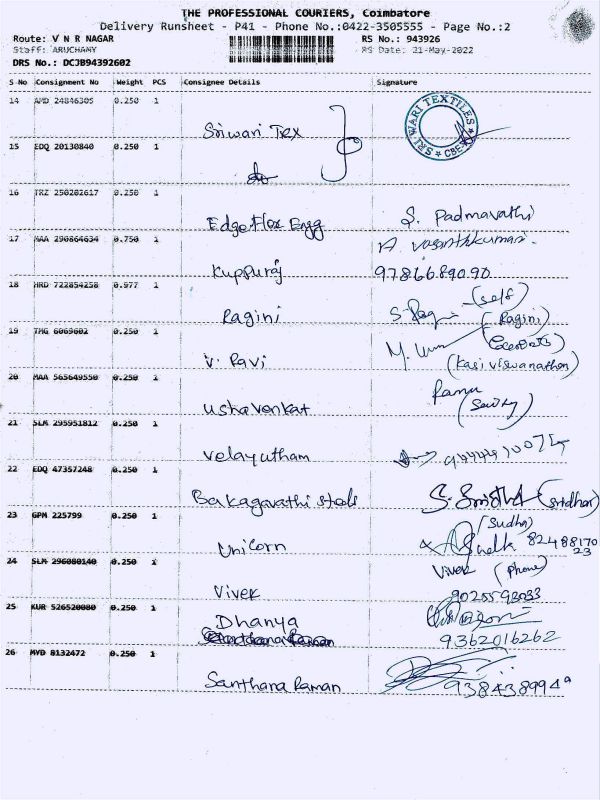 THE PROFESSIONAL COURIERS, Coimbatore
Delivery Runsheet - P41 - Phone No.:0422-3505555 - Page No.:2
Route: V N R NAGAR RS No.: 943926
Staff: ARUCHAMY RS Date: 21-May-2022
DRS No.: DCJB94392602
S No Consignment No Weight PCS Consignee Details Signature
14 AMD 24846305 0.250 1
Sriwari Tex SRI WARI TEXTILES CBE
15 EDQ 20130840 0.250 1
16 TRZ 250202617 0.250 1
Edgeflex Engg S. Padmavathi
17 MAA 290864634 0.750 1 A. Vasanthkumari.
Kuppuraj 9786689090
18 HRD 722854258 0.977 1 (self)
Ragini (Ragini)
19 TMG 6069602 0.250 1
V. Ravi (Kasi Viswanathan)
20 MAA 565649550 0.250 1 Ramu
Usha Venkat
21 SLM 295951812 0.250 1
Velayutham
22 EDQ 47357248 0.250 1
Bakagavathi steels (Sridhar)
23 GPM 225799 0.250 1 (Sudha)
Unicorn 8248817023
24 SLM 296080140 0.250 1 Vivek (Phone)
Vivek 9025593033
25 KUR 526520080 0.250 1
Dhanya 9362016262
26 MYD 8132472 0.250 1
Santhana Raman 9384389949